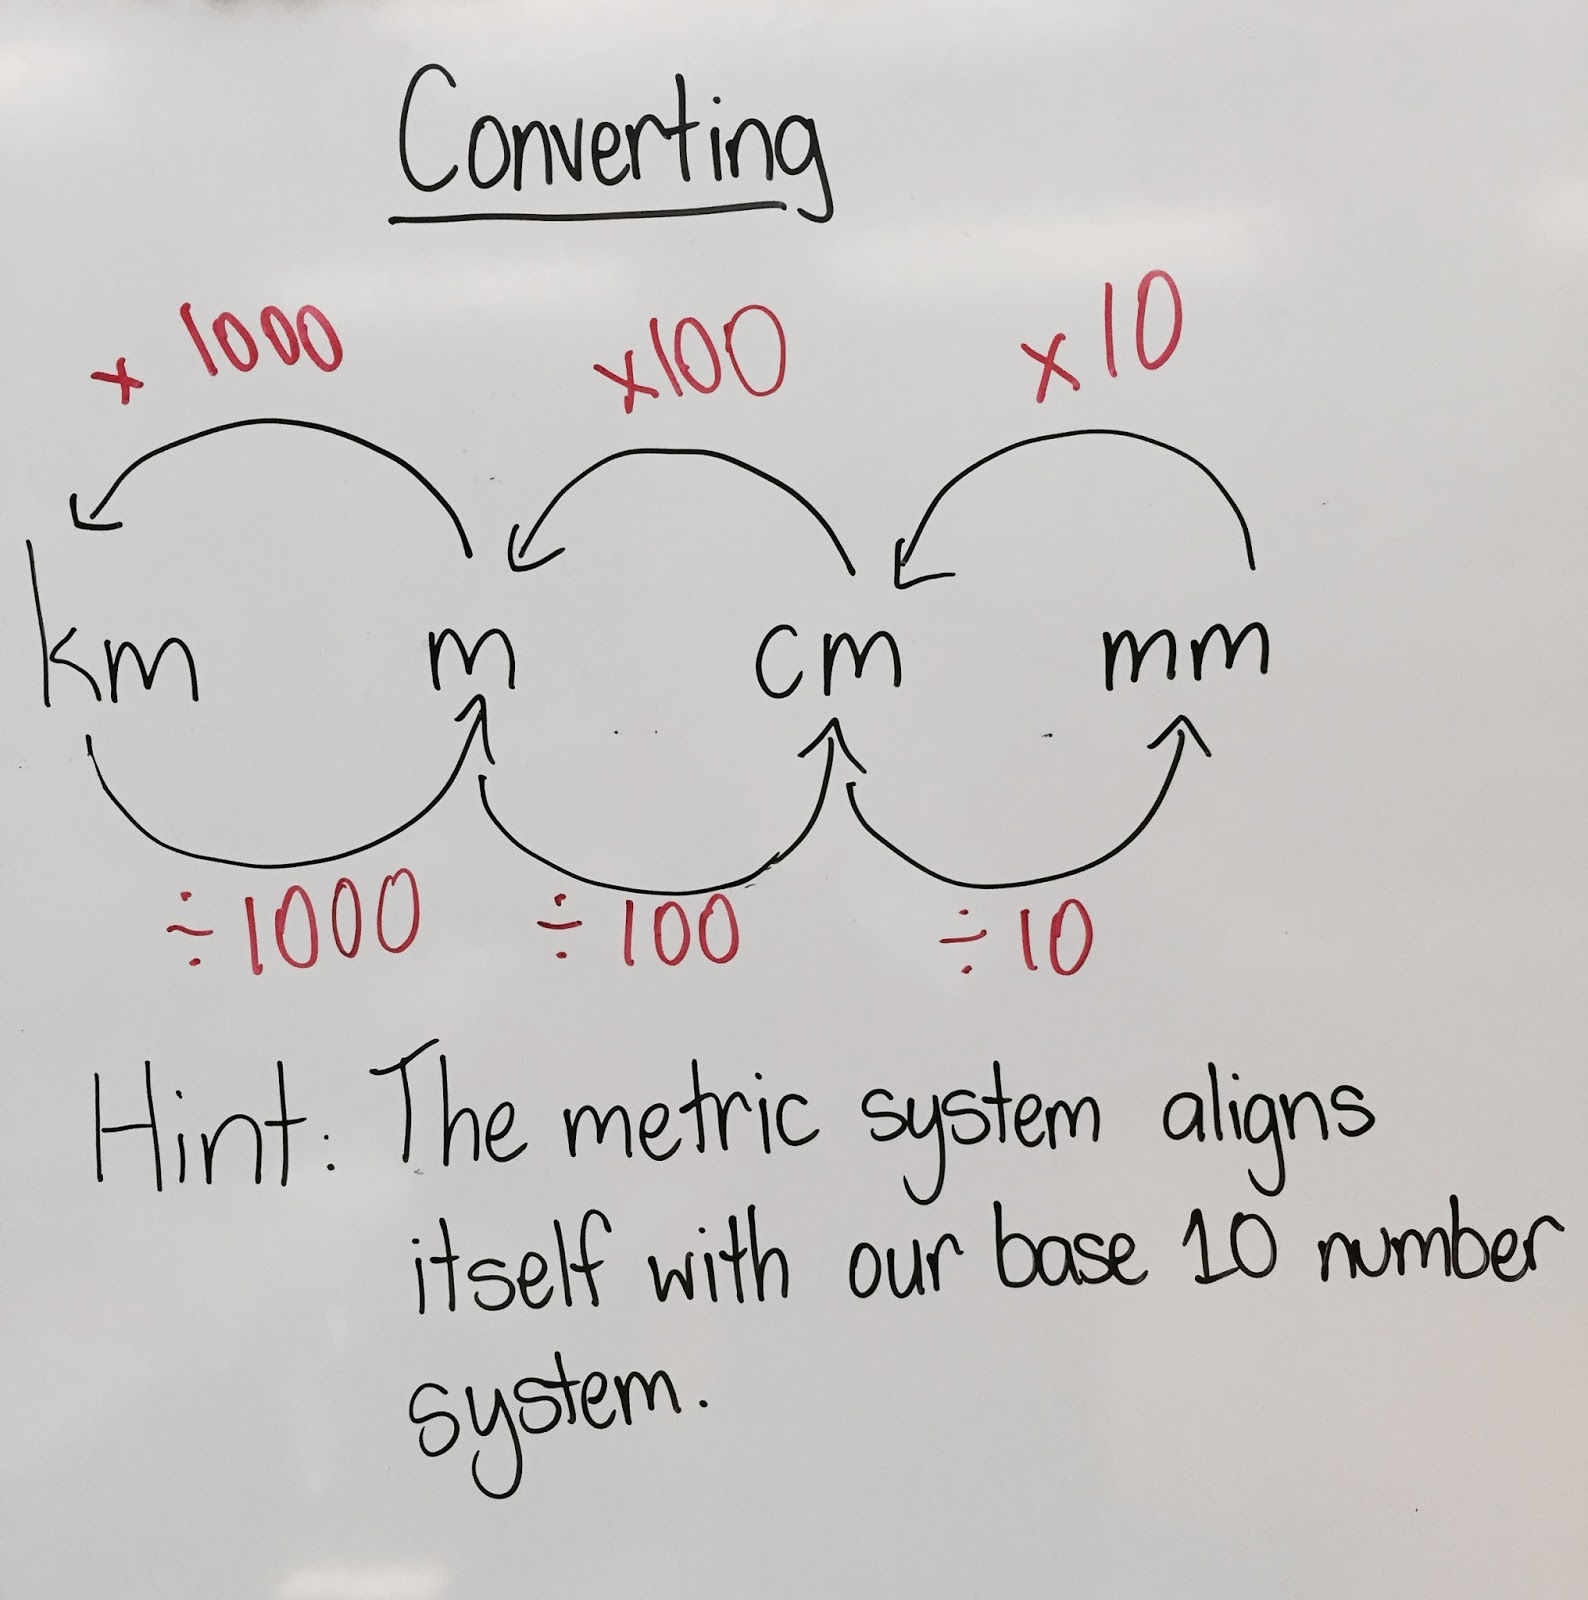 Converting
x 1000 x100 x 10
km m cm mm
÷ 1000 ÷ 100 ÷ 10
Hint: The metric system aligns
itself with our base 10 number
system.